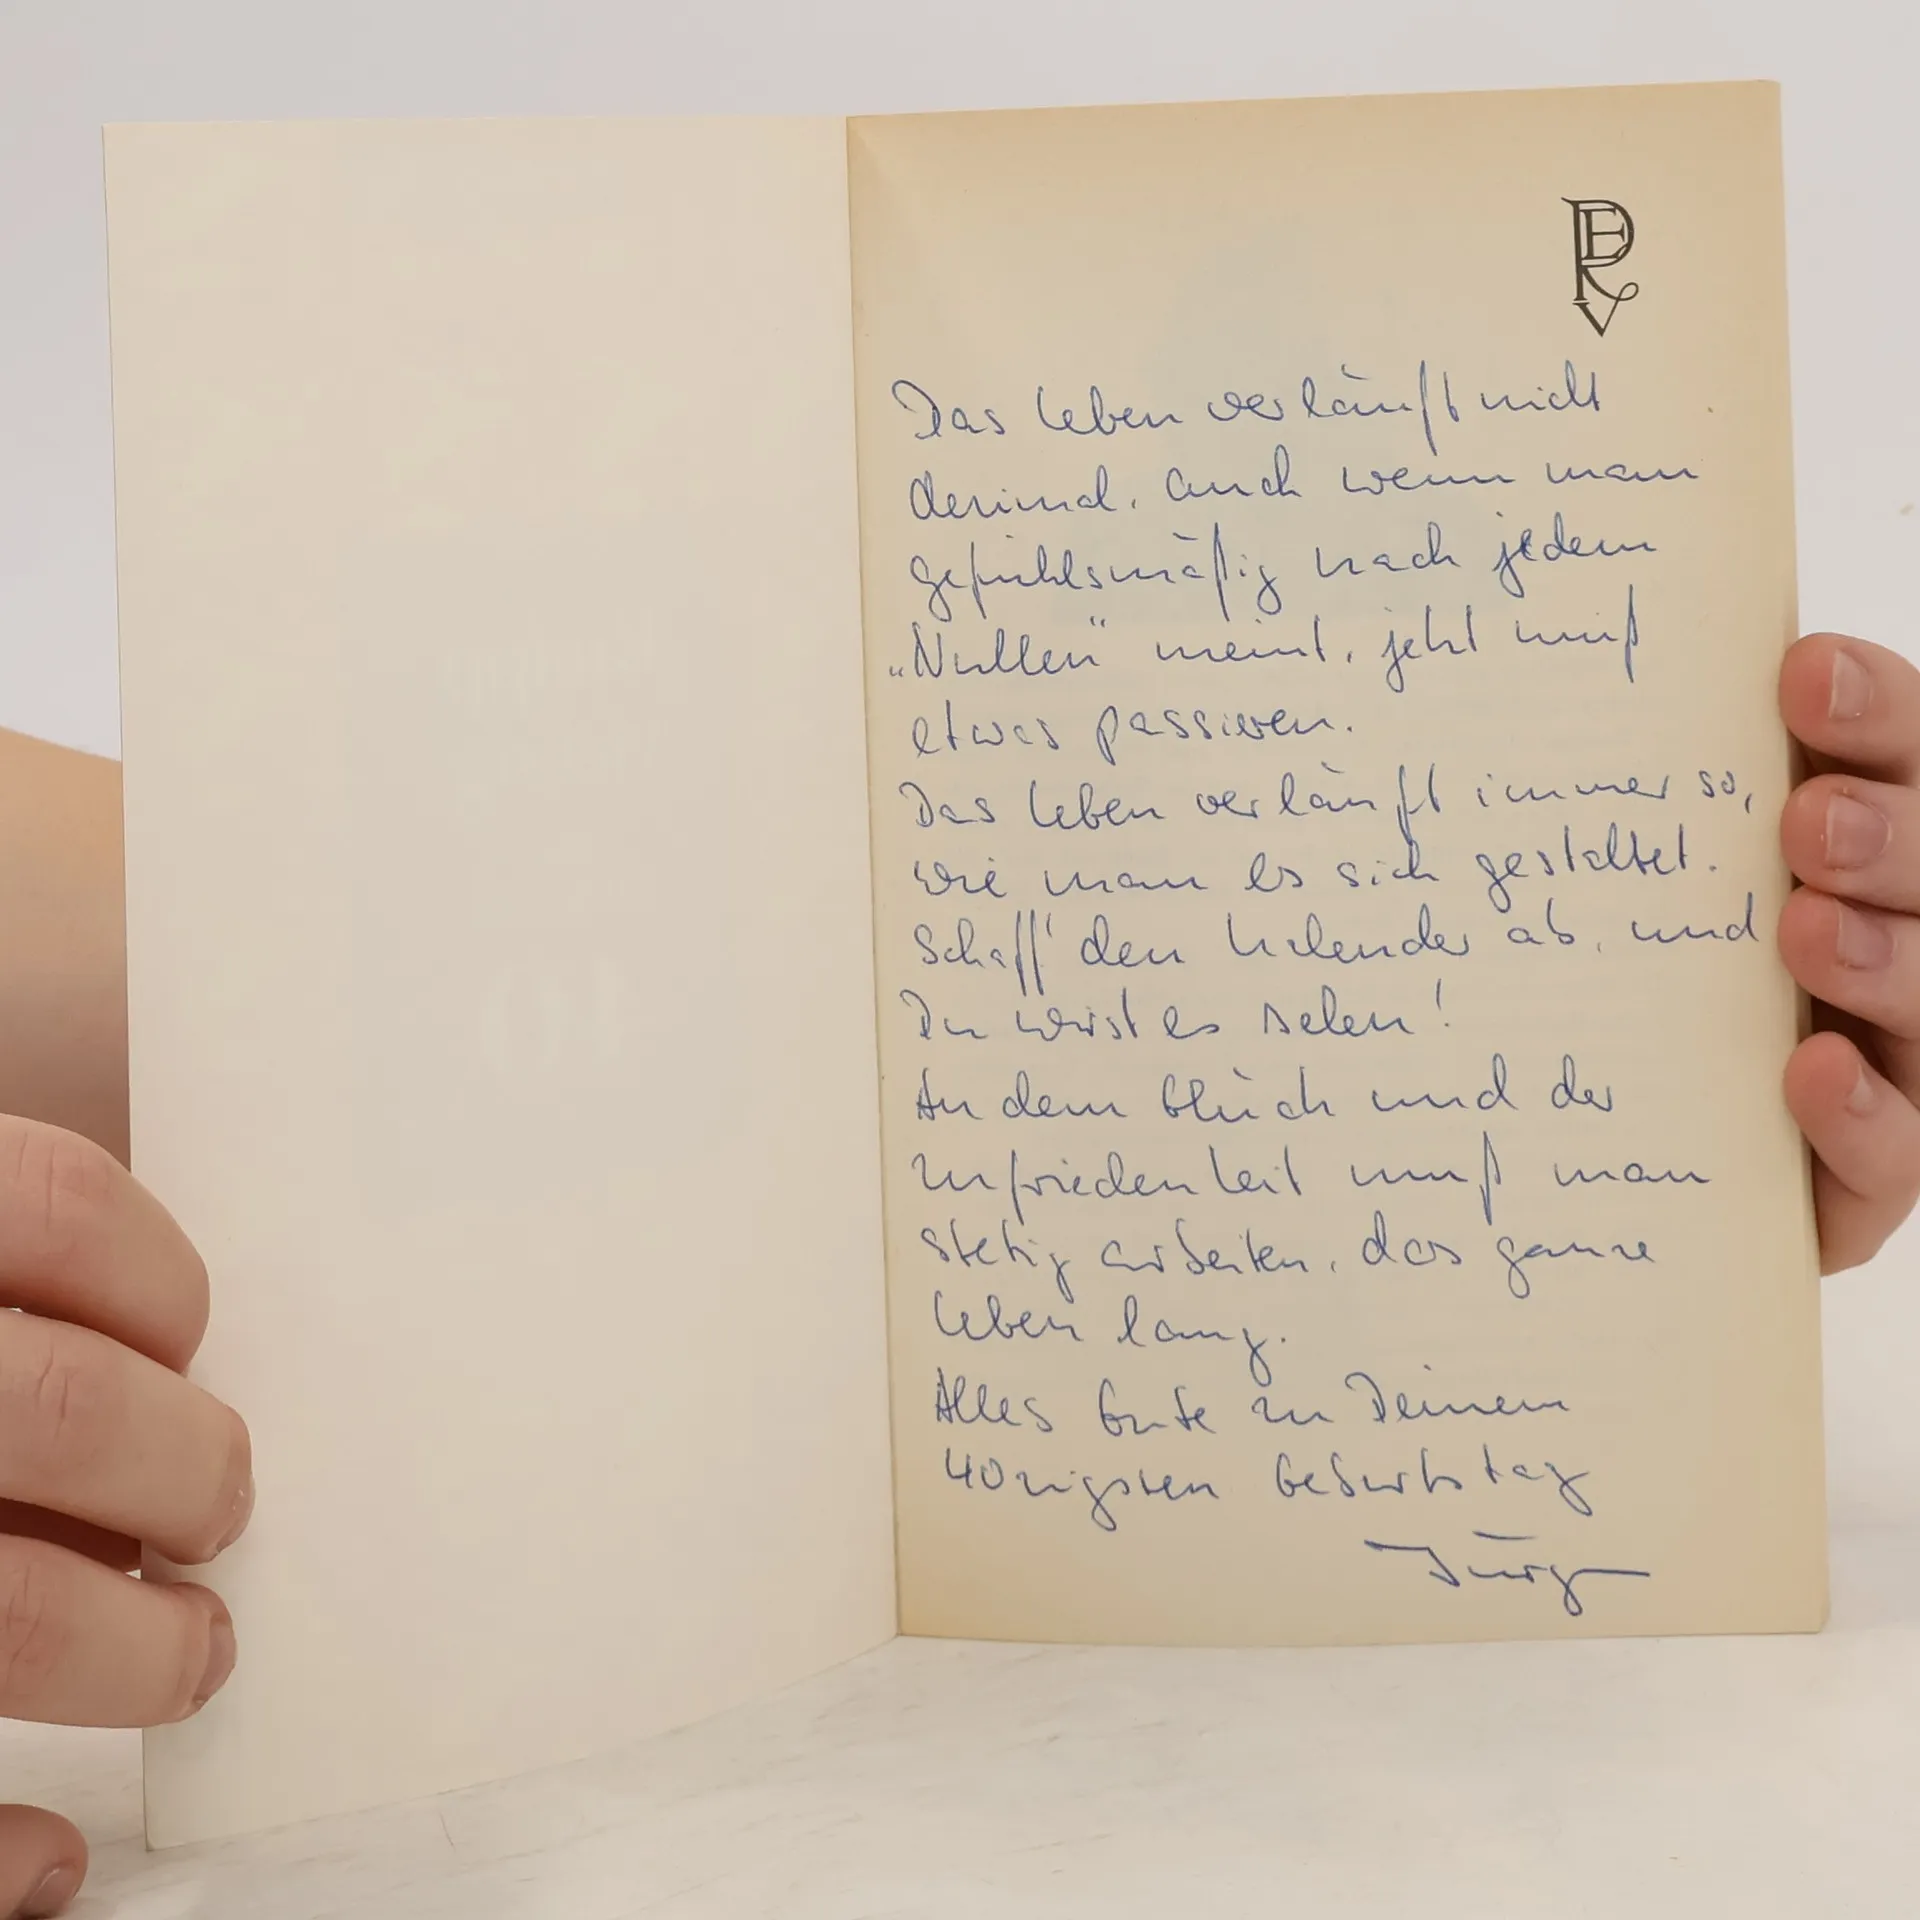 PEV
Das Leben verläuft nicht
dezimal, auch wenn man
gefühlsmäßig nach jedem
„Nullen“ meint, jetzt muß
etwas passieren.
Das Leben verläuft immer so,
wie man es sich gestaltet.
Schaff' den Kalender ab, und
Du wirst es sehen!
An dem Glück und der
Zufriedenheit muß man
stetig arbeiten, das ganze
Leben lang.
Alles Gute zu Deinem
40zigsten Geburtstag
Jürgen